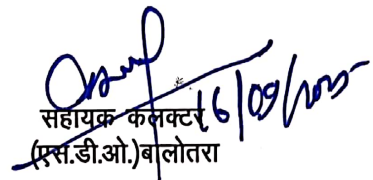 16/09/2025
सहायक कलक्टर
(एस.डी.ओ.)बालोतरा